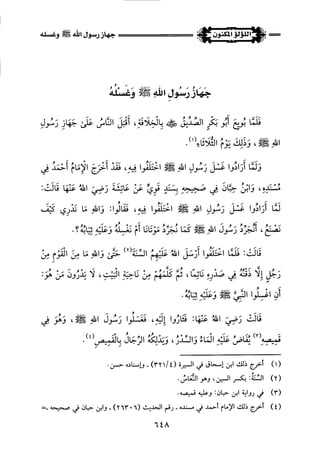 اللؤلؤ المكنون
جهاز رسول الله ﷺ وغسله
جِهَازُ رَسُولِ اللهِ ﷺ وَغَسْلُهُ
فَلَمَّا بُويِعَ أَبُو بَكْرٍ الصِّدِّيقُ ﵁ بِالْخِلَافَةِ، أَقْبَلَ النَّاسُ عَلَى جَهَازِ رَسُولِ
اللهِ ﷺ، وَذَلِكَ يَوْمُ الثُّلَاثَاءِ(١).
وَلَمَّا أَرَادُوا غَسْلَ رَسُولِ اللهِ ﷺ اخْتَلَفُوا فِيهِ، فَقَدْ أَخْرَجَ الْإِمَامُ أَحْمَدُ فِي
مُسْنَدِهِ، وَابْنُ حِبَّانَ فِي صَحِيحِهِ بِسَنَدٍ قَوِيٍّ عَنْ عَائِشَةَ رَضِيَ اللهُ عَنْهَا قَالَتْ:
لَمَّا أَرَادُوا غَسْلَ رَسُولِ اللهِ ﷺ اخْتَلَفُوا فِيهِ، فَقَالُوا: وَاللهِ مَا نَدْرِي كَيْفَ
نَصْنَعُ، أَنُجَرِّدُ رَسُولَ اللهِ ﷺ كَمَا نُجَرِّدُ مَوْتَانَا أَمْ نَغْسِلُهُ وَعَلَيْهِ ثِيَابُهُ؟.
قَالَتْ: فَلَمَّا اخْتَلَفُوا أَرْسَلَ اللهُ عَلَيْهِمُ السِّنَةَ(٢) حَتَّى وَاللهِ مَا مِنَ الْقَوْمِ مِنْ
رَجُلٍ إِلَّا ذَقْنُهُ فِي صَدْرِهِ نَائِمًا، ثُمَّ كَلَّمَهُمْ مِنْ نَاحِيَةِ الْبَيْتِ، لَا يَدْرُونَ مَنْ هُوَ:
أَنِ اغْسِلُوا النَّبِيَّ ﷺ وَعَلَيْهِ ثِيَابُهُ.
قَالَتْ رَضِيَ اللهُ عَنْهَا: فَثَارُوا إِلَيْهِ، فَغَسَلُوا رَسُولَ اللهِ ﷺ، وَهُوَ فِي
قَمِيصِهِ(٣) يُفَاضُ عَلَيْهِ الْمَاءُ وَالسِّدْرُ، وَيَدْلُكُهُ الرِّجَالُ بِالْقَمِيصِ(٤).
(١) أخرج ذلك ابن إسحاق في السيرة (٣٢١/٤) ـ وإسناده حسن.
(٢) السِّنَةُ: بكسر السين، وهو النُّعَاسُ.
(٣) في رواية ابن حبان: وعليه قميصه.
(٤) أخرج ذلك الإمام أحمد في مسنده ـ رقم الحديث (٢٦٣٠٦) ـ وابن حبان في صحيحه ـ=
٦٤٨